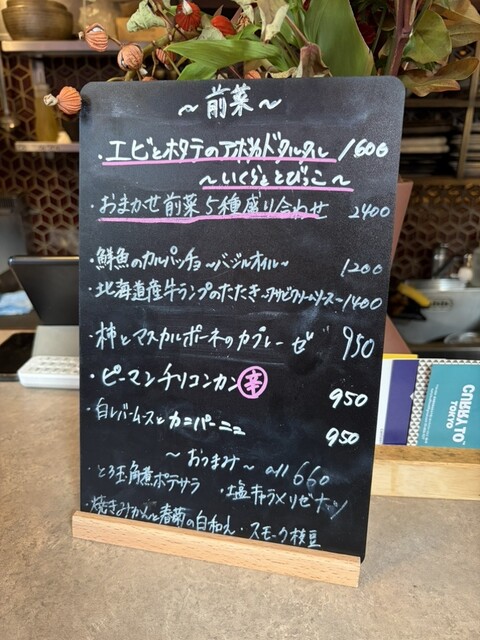 〜前菜〜
・エビとホタテのアボカドタルタル 1600
〜いくらととびっこ〜
・おまかせ前菜5種盛り合わせ 2400
・鮮魚のカルパッチョ〜バジルオイル〜 1200
・北海道産牛ランプのたたき〜ワサビクリームソース〜 1400
・柿とマスカルポーネのカプレーゼ 950
・ピーマンチリコンカン 辛 950
・白レバームースとカンパーニュ 950
〜おつまみ〜 all 660
・とろ玉角煮ポテサラ ・塩キャラメリゼナッツ
・焼きみかんと春菊の白和え ・スモーク枝豆
TOKYO